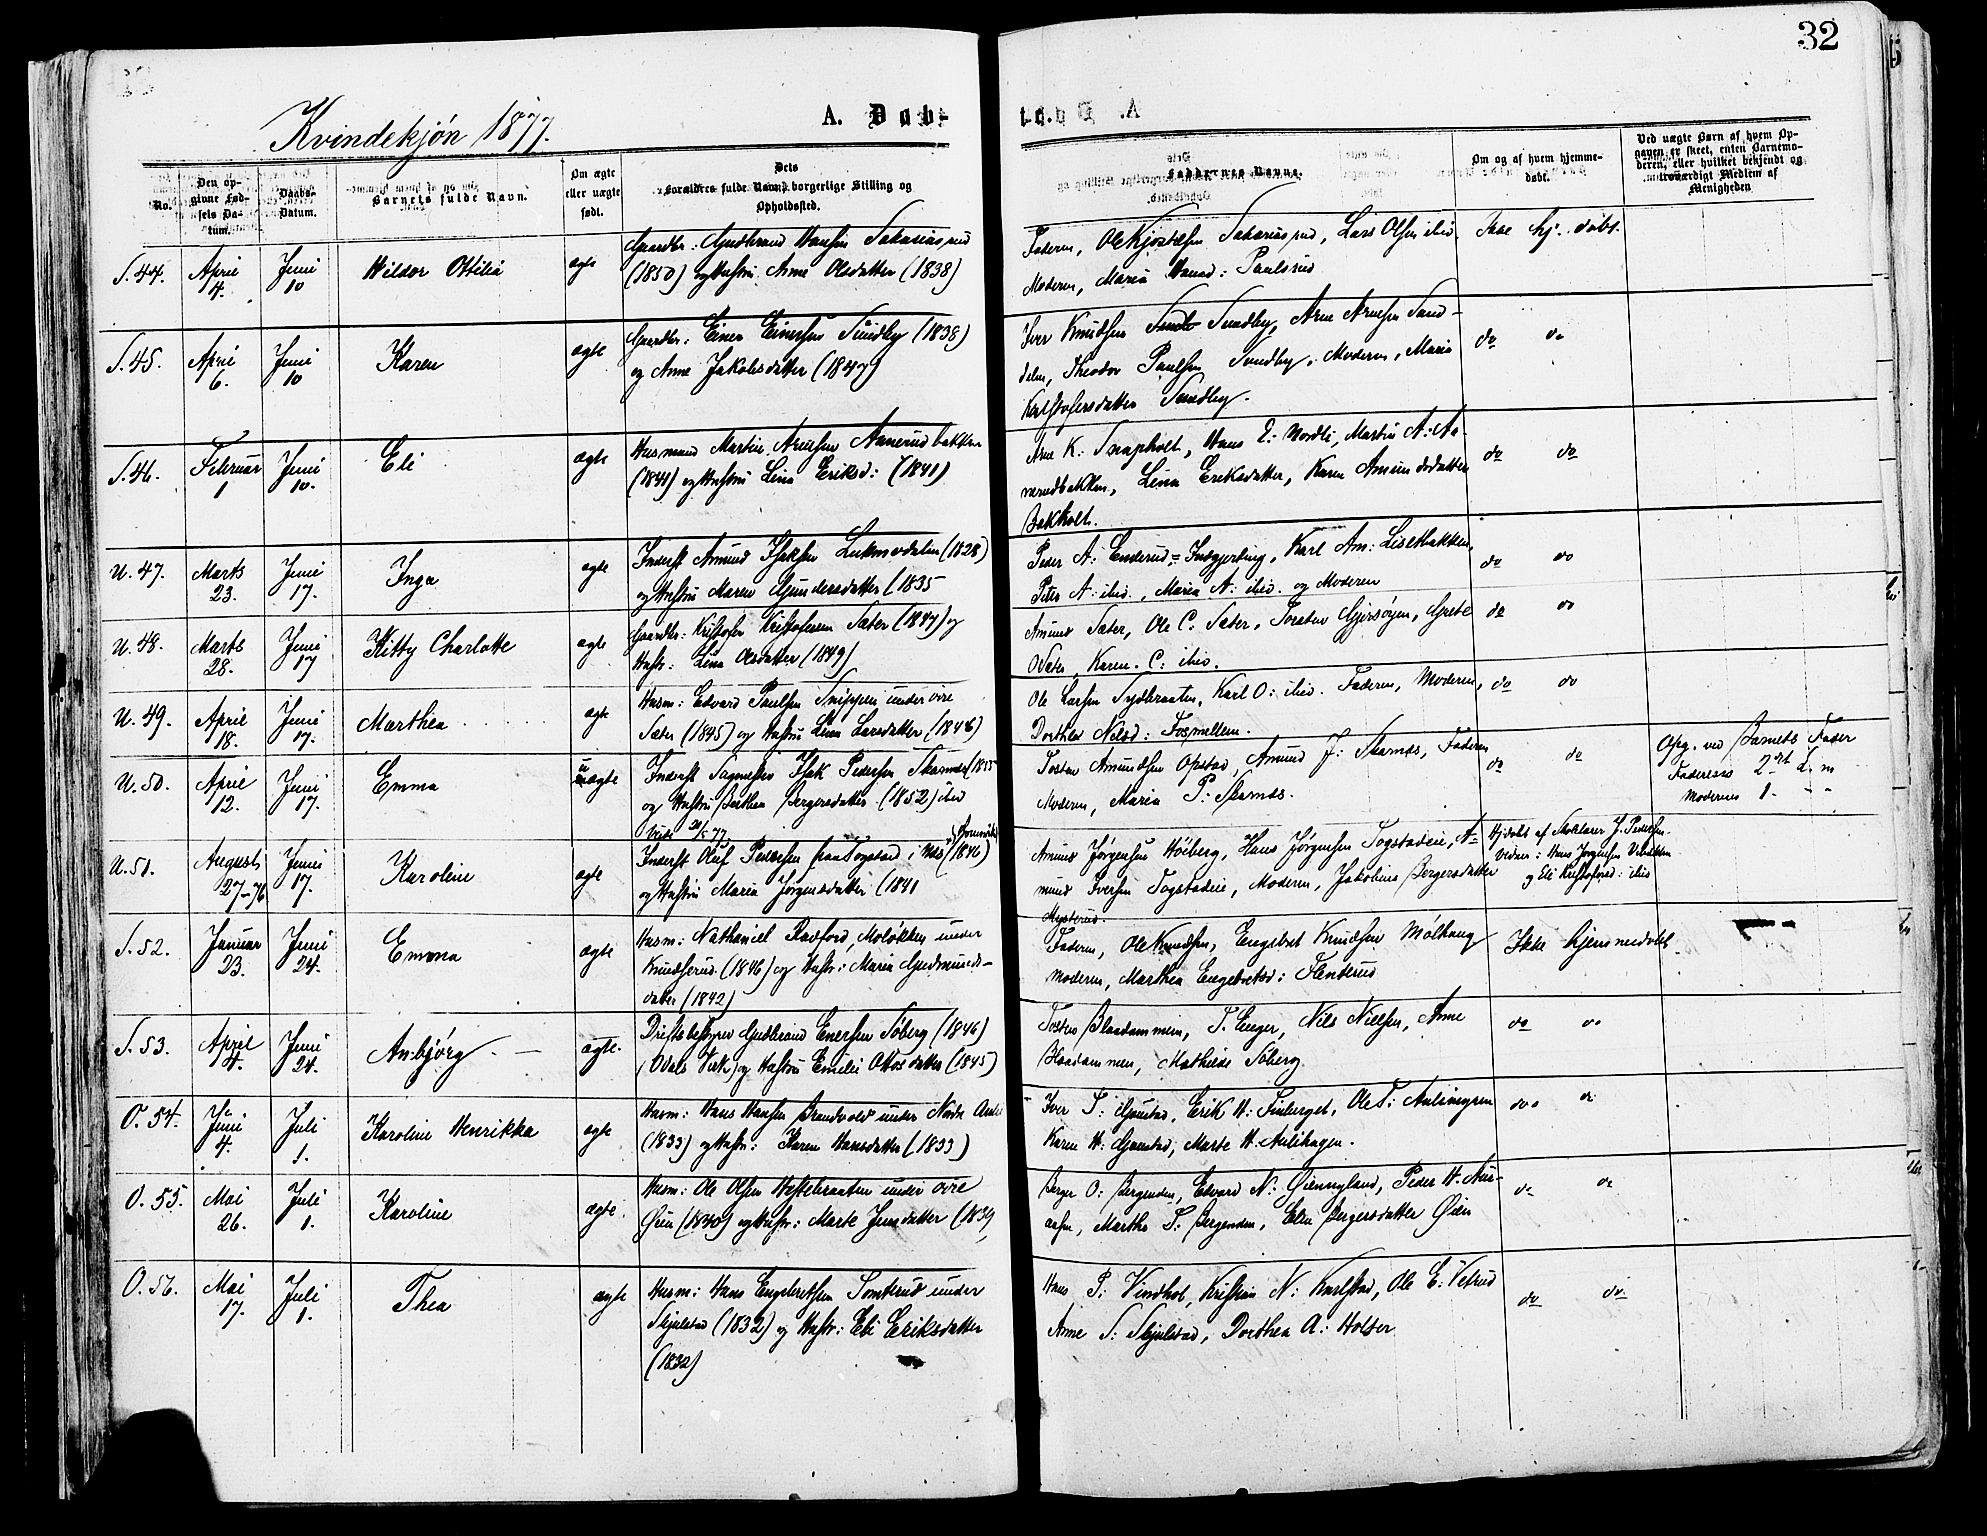 32
Kvindekjøn 1877.
A. Daab.
No.
Den opgivne Fødsels Datum.
Daabs-Datum.
Barnets fulde Navn.
Om ægte eller uægte født.
Dets Forældres fulde Navn, borgerlige Stilling og Opholdssted.
Faddernes Navne.
Om og af hvem hjemmedøbt.
Ved uægte Børn af hvem Opgaven er skeet, enten Barnemoderen, eller hvilket bekjendt og troværdigt Medlem af Menigheden
S. 44. April 4. Juni 10 Hildor Ottilia ægte
Gaardbr: Gudbrand Hansen Sakariasrud
(1850) og Hustru Anne Olsdatter (1838)
Faderen, Ole Kjostelsen Sakariasrud, Lars Olsen ibid. Ikke hj. døbt.
Moderen, Maria Hansd: Paulsrud
S. 45. April 6. Juni 10 Karen ægte
Gaardbr: Einer Einersen Sundby (1838)
og Anne Jakobsdatter (1847)
Iver Knudsen Sundby, Arne Arnesen Sand- do do
dalen, Theodor Paulsen Sundby, Moderen, Maria
Kristofersdatter Sundby.
S. 46. Februar 1 Juni 10. Eli ægte
Husmand Martin Arnesen Aanerudbakken
(1841) og Hustru Lina Eriksd: (1841)
Arne K: Snapholt, Hans E: Nordli, Martin A: Aa- do do
nerudbakken, Lina Eriksdatter, Karen Amundsdatter
Bakholt.
U. 47. Marts 23. Juni 17. Inga ægte
Inderst Amund Isaksen (1828)
og Hustru Maren Gundersdatter (1835
Peder A: Enderud, Karl Am: Lisetbakken, do do
Peter A: ibid., Maria A: ibid. og Moderen
U. 48. Marts 28. Juni 17 Kitty Charlotte ægte
Gaardbr: Kristofer Kristofersen Sæter (1847) og
Hustr: Lina Olsdatter (1849)
Amund Sæter, Ole C. Sæter, Torsten Gjersøyen, Grete do do
O Sæter, Karen C: ibid.
U. 49. April 18. Juni 17. Marthea ægte
Husm: Edvard Paulsen Snippen under øvre
Sæter (1845) og Hustru Lina Larsdatter (1846)
Ole Larsen Sydbraaten, Karl O: ibid. Faderen, Moderen, do do
Dorthea Nilsd: Fosmellem.
U. 50. April 12. Juni 17. Emma uægte
Inderst Isak Pedersen Skarnæs (1855
og Hustru Berthea Bergersdatter (1852) ibid
Tosten Amundsen Opstad, Amund J: Skarnæs, Faderen do do
Moderen, Maria P: Skarnæs.
Opg. ved Barnets Fader
Faderens 2det L. m
Moderens 1. - -
U. 51. August 27-76 Juni 17. Karoline ægte
Inderst Oluf Pedersen fra Togstad i Næs (1846)
og Hustru Maria Jørgensdatter (1841
Amund Jørgensen Høiberg, Hans Jørgensen Togstadeie, A-
mund Iversen Togstadeie, Moderen, Jakobine Bergersdatter
Mysterud.
Hj. døbt af Skolelærer J. Pedersen.
Vidner: Hans Jørgensen
og Eli Kristofersd: ibid
S. 52. Januar 23. Juni 24. Emma ægte
Husm: Nathaniel Radford, Moløkken under
Knudserud (1846) og Hustr: Maria Gudmunds-
datter (1842)
Faderen, Ole Knudsen, Engebret Knudsen Mølhaug Ikke hjemmedøbt
Moderen, Marthea Engebretsd: Flenterud
S. 53. April 4. Juni 24. Anbjørg ægte.
Driftsbestyrer Gudbrand Enersen Søberg (1846)
(Odals Verk) og Hustru Emilie Ottosdatter (1845)
Tosten Blaadammen, T. Enger, Nils Nielsen, Anne do do
Blaadammen, Mathilde Søberg
O. 54. Juni 4. Juli 1. Karoline Henrikka ægte
Husm: Hans Hansen Brandvold under Nordre Auli
(1833) og Hustr: Karen Hansdatter (1833)
Iver T: Gjeustad, Erik H: Finberget, Ole T: Aulimyren do do
Karen H: Gjeustad, Marte H: Aulihagen.
O. 55. Mai 26. Juli 1. Karoline ægte.
Husm: Ole Olsen Hestebraaten under øvre
Øien (1840) og Hustr: Marte Jensdatter (1839)
Berger O: Bergenden, Edvard N: Øiennyland, Peder H. Aur- do do
aasen, Marthe T: Bergenden, Elen Bergersdatter Øien
O. 56. Mai 17. Juli 1. Thea ægte
Husm: Hans Engebretsen Tomterud under
Skjulstad (1832) og Hustr: Eli Eriksdatter
(1832)
Hans P: Vindhol, Kristian N: Karlstad, Ole E: Vetrud do do
Anne S: Skjulstad, Dorthea A: Holter